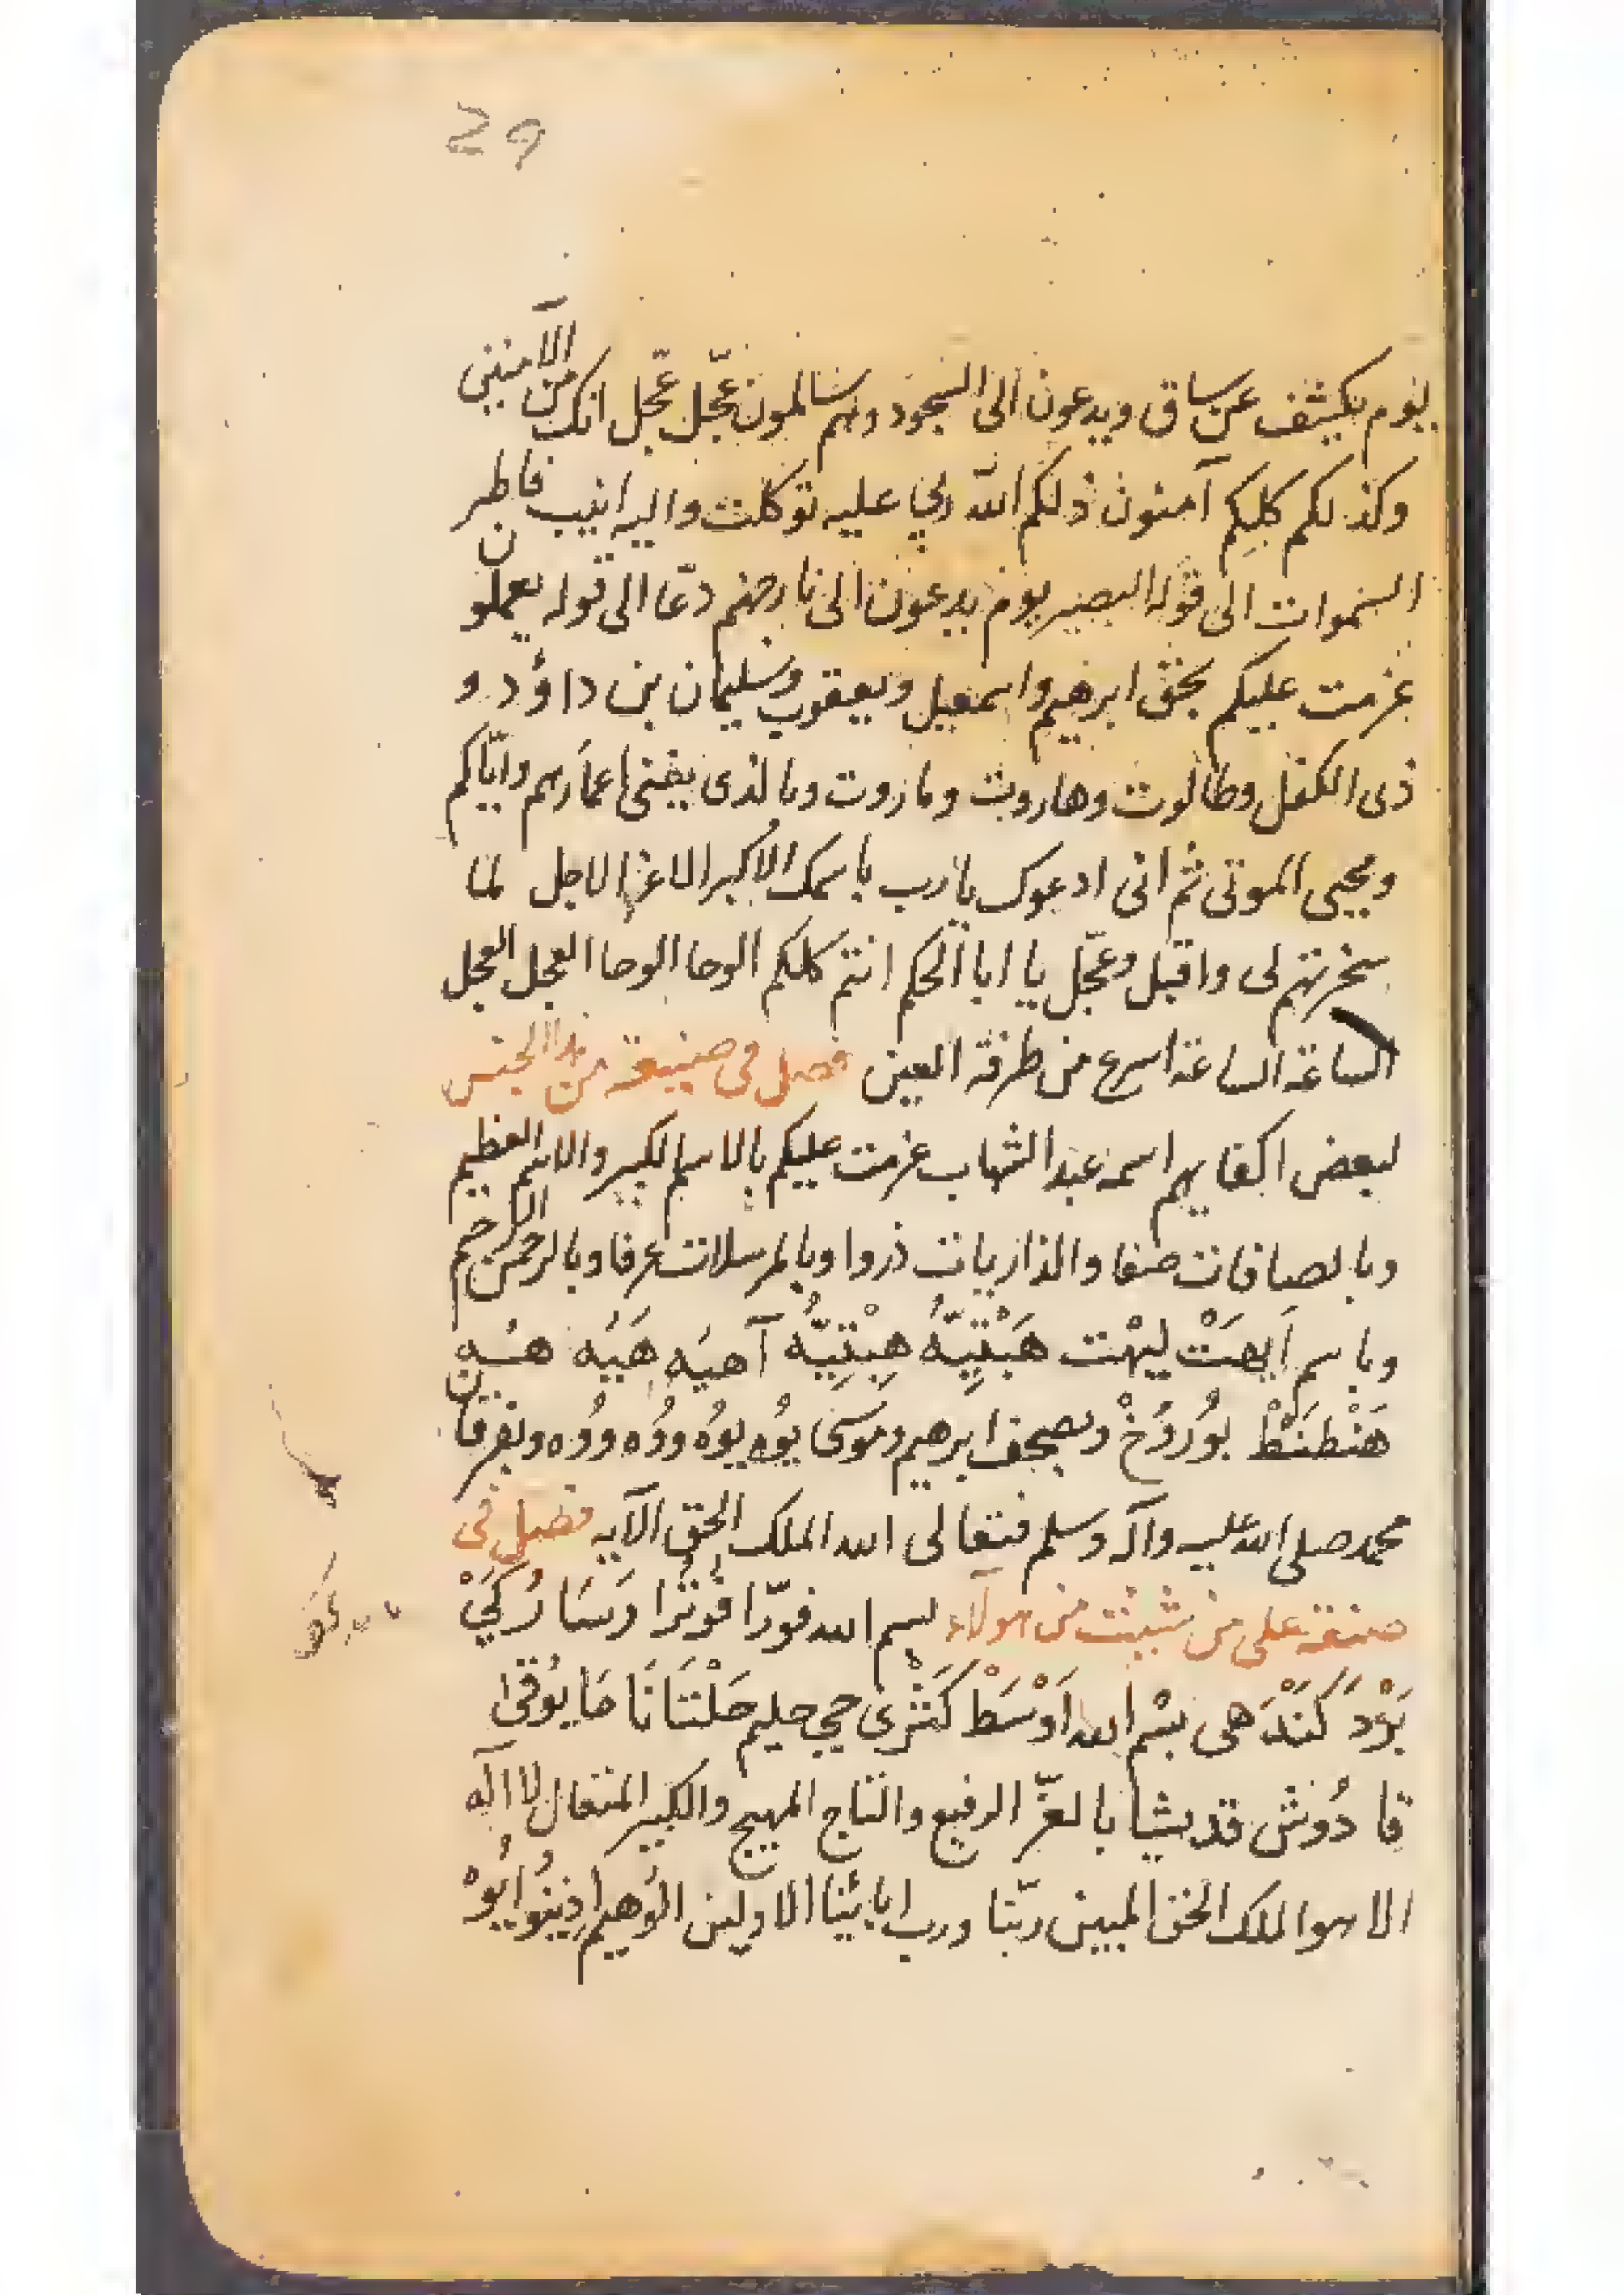 29
يوم يكشف عن ساق ويدعون الى السجود وهم سالمون عجّل عجّل انك من الآمنين
وكذلكم كلكم آمنون ذلكم الله ربي عليه توكلت واليه انيب فاطر
السموات الى قوله البصير يوم يدعون الى نار جهنم دعّا الى قوله يعملون
عزمت عليكم بحق ابرهيم واسمعيل ويعقوب وسليمان بن داؤد و
ذى الكفل وطالوت وهاروت وماروت وبالذى يفنى اعمارهم واياكم
ويحيى الموتى ثم انى ادعوك يا رب باسمك الاكبر الاعز الاجل لما
سخرتهم لى واقبل وعجّل يا ابا الحكم انتم كلكم الوحا الوحا العجل العجل
الساعة الساعة اسرع من طرفة العين فصل فى صنيعة من هذا الجنس
لبعض اكفايهم اسمه عبد الشهاب عزمت عليكم بالاسم الكبير والاسم العظيم
وبالصافات صفا والذاريات ذروا وبالمرسلات عرفا وبالرحمن الرحيم
وباسم آهيه هيه
وبصحف ابرهيم وموسى يوه يوه ووه ووه وبفرقان
محمد صلى الله عليه وآله وسلم فتعالى الله الملك الحق الآيه فصل فى
صنعة على من شيئت من هولآء بسم الله
بسم الله حي حليم
قا دُوش قديشا بالعزّ الرفيع والتاج المهيج والكبير المتعال لا اله
الا هو الملك الحق المبين ربّنا ورب ابائينا الاولين الوهيم